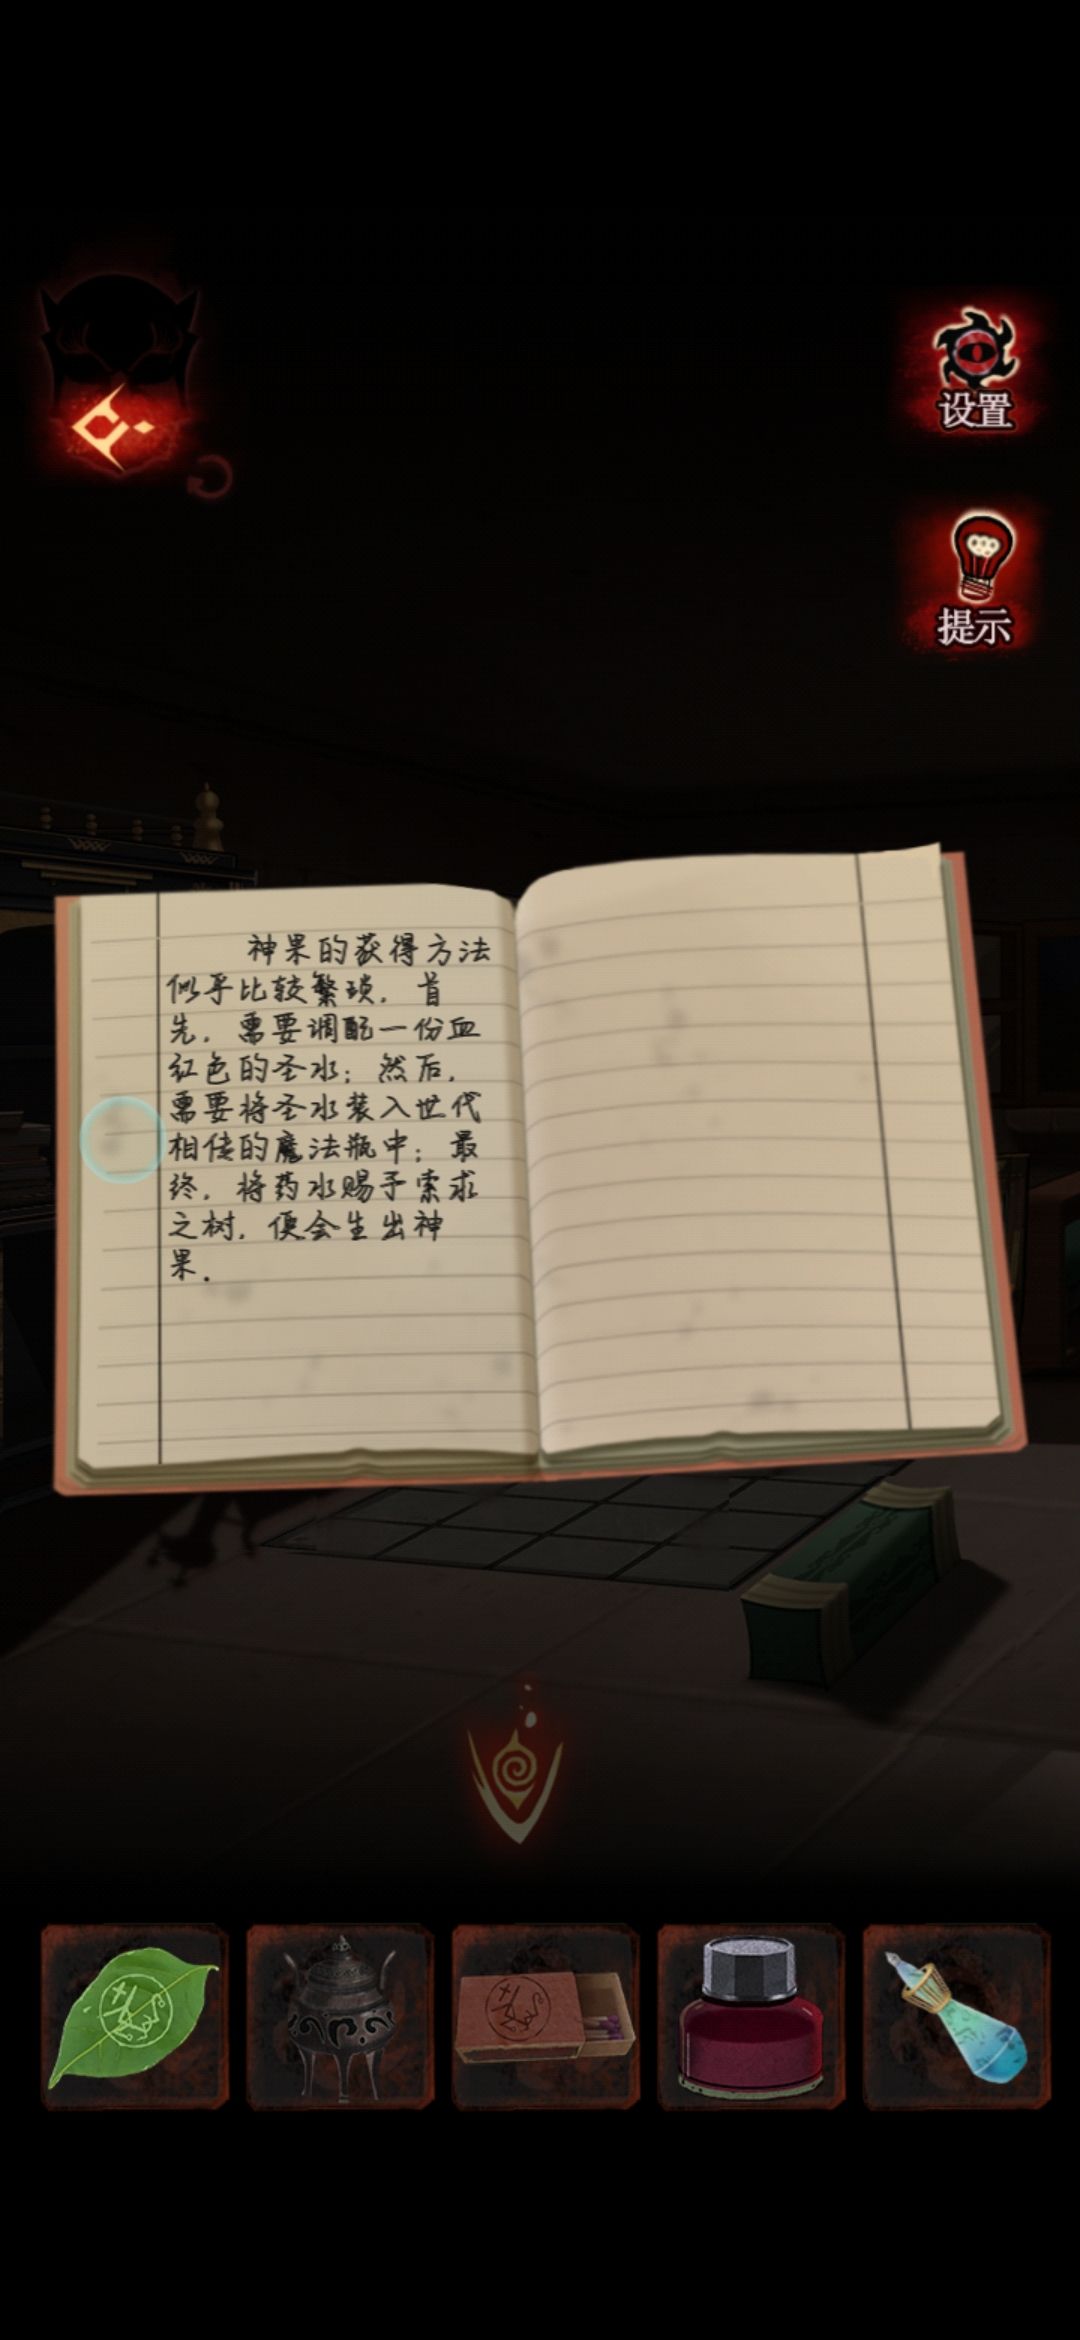 设置
提示
神果的获得方法
似乎比较繁琐. 首
先. 需要调配一份血
红色的圣水; 然后.
需要将圣水装入世代
相传的魔法瓶中; 最
终. 将药水赐予索求
之树. 便会生出神
果.